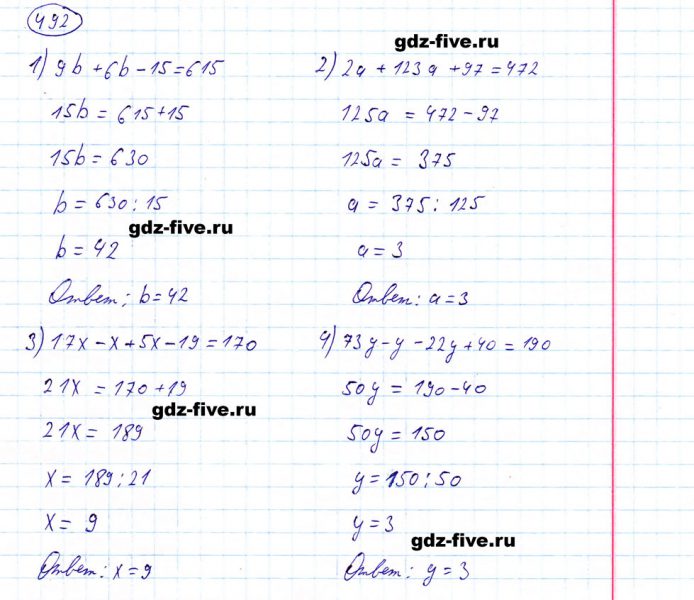 492
gdz-five.ru
1) 9b + 6b - 15 = 615
15b = 615 + 15
15b = 630
b = 630 : 15
gdz-five.ru
b = 42
Ответ: b = 42
2) 2a + 123a + 97 = 472
125a = 472 - 97
125a = 375
a = 375 : 125
a = 3
Ответ: a = 3
3) 17x - x + 5x - 19 = 170
21x = 170 + 19
gdz-five.ru
21x = 189
x = 189 : 21
x = 9
Ответ: x = 9
4) 73y - y - 22y + 40 = 190
50y = 190 - 40
50y = 150
y = 150 : 50
y = 3
gdz-five.ru
Ответ: y = 3